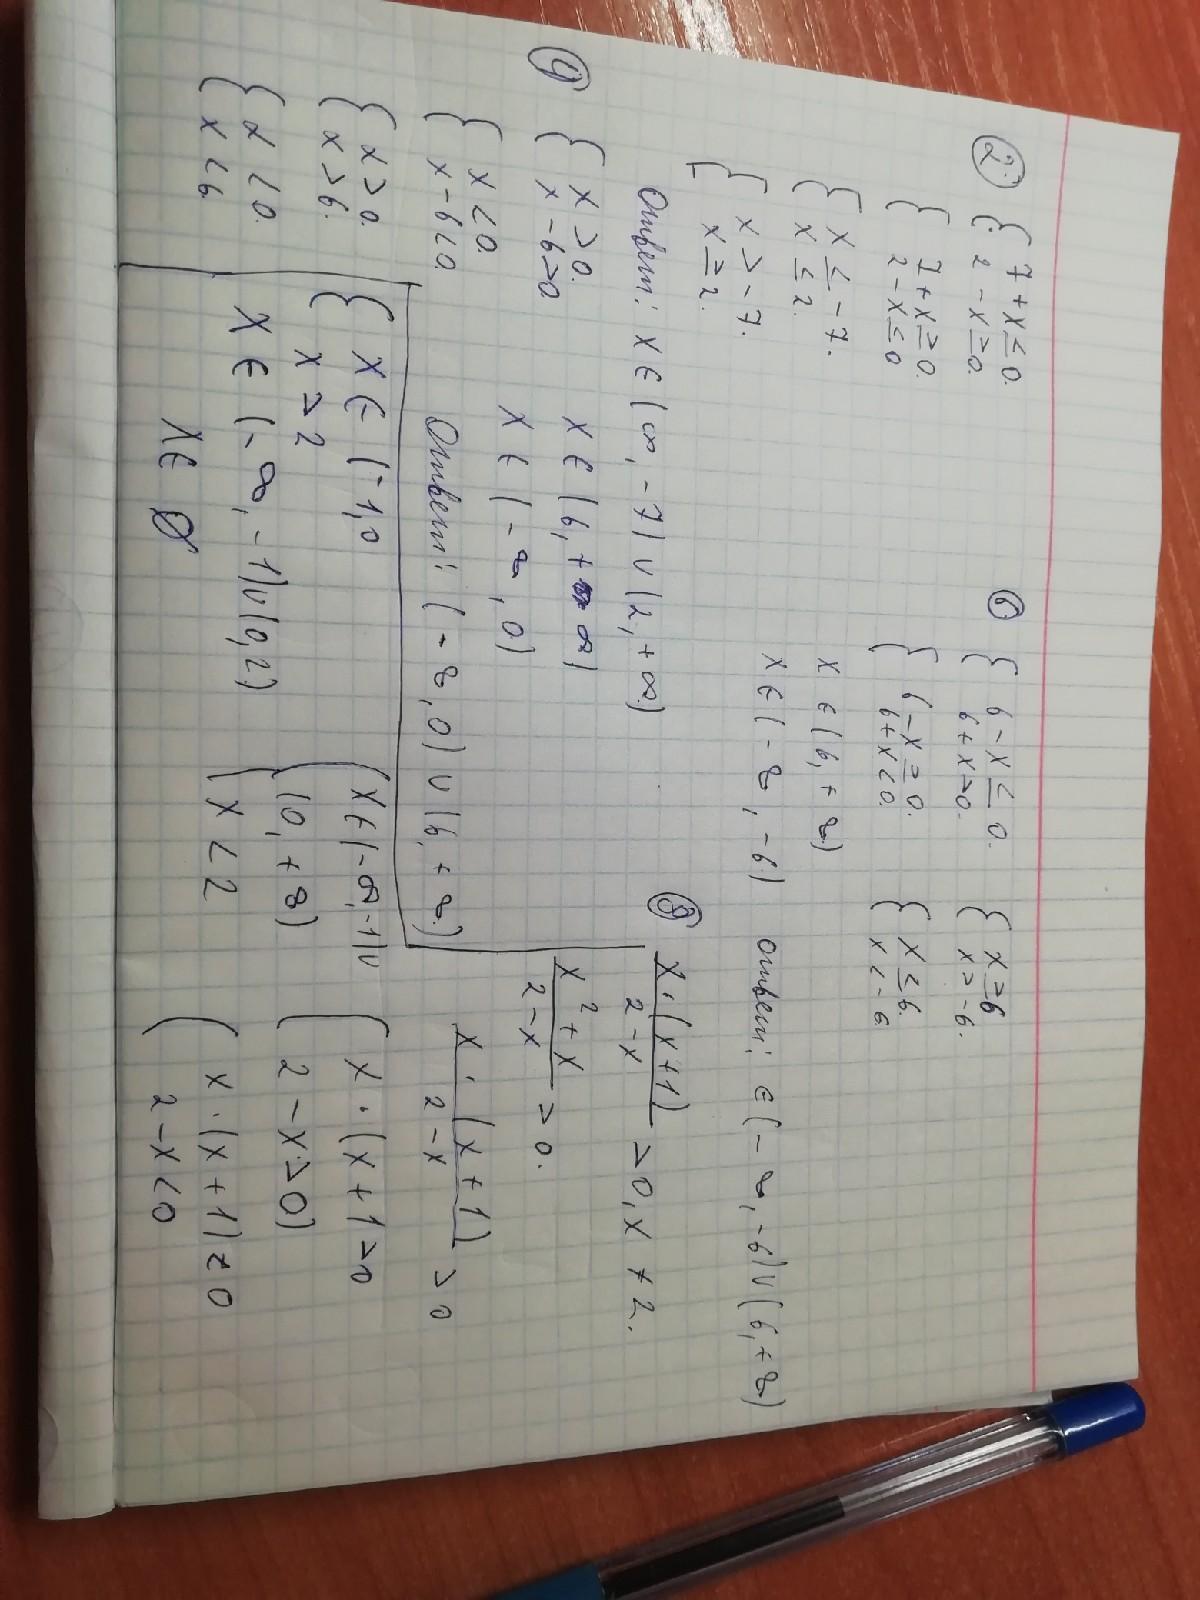 ② { 7 + x ≤ 0.
2 - x ≥ 0.
{ 7 + x ≥ 0.
2 - x ≤ 0
{ x ≤ - 7.
x ≤ 2.
{ x > - 7.
x ≥ 2.
Ответ: x ∈ (∞, -7) ∪ (2, +∞)
④ { x > 0.
x - 6 > 0
{ x < 0.
x - 6 < 0.
{ x > 0.
x > 6.
{ x < 0.
x < 6.
x ∈ (6, +∞)
x ∈ (-∞, 0)
Ответ: (-∞, 0) ∪ (6, +∞)
⑥ { 6 - x ≤ 0.
6 + x > 0.
{ 6 - x ≥ 0.
6 + x < 0.
{ x ≥ 6
x > -6.
{ x ≤ 6.
x < - 6
x ∈ (6, +∞)
x ∈ (-∞, -6)
ответ: ∈ (-∞, -6) ∪ (6, +∞)
⑧ x · (x + 1) / 2 - x > 0, x ≠ 2.
x² + x / 2 - x > 0.
x · (x + 1) / 2 - x > 0
{ x · (x + 1 > 0
2 - x > 0)
( x · (x + 1) < 0
2 - x < 0
{ x ∈ (-∞, -1) ∪
(0, +∞)
x < 2
{ x ∈ (-1, 0
x > 2
x ∈ (-∞, -1) ∪ (0, 2)
x ∈ ∅